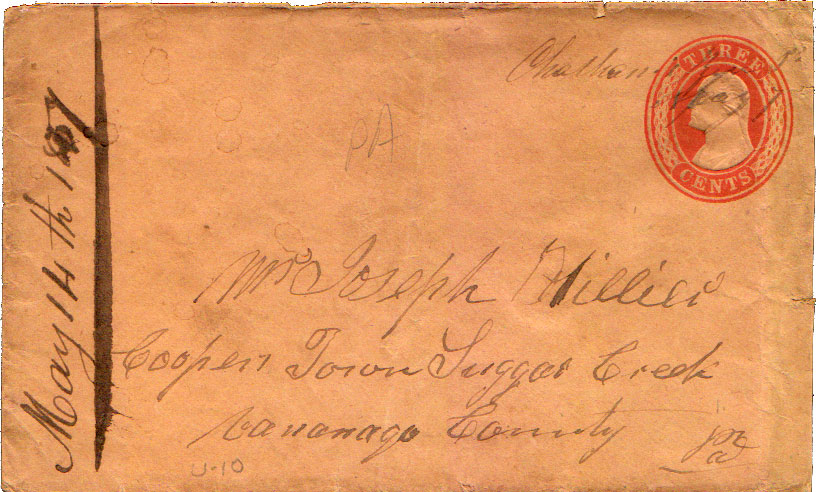 Chatham
May
THREE
CENTS
PA
May 14th 1857
Mr Joseph Hillier
Cooper Town Suggar Creek
Vananago County
Pa
U-10